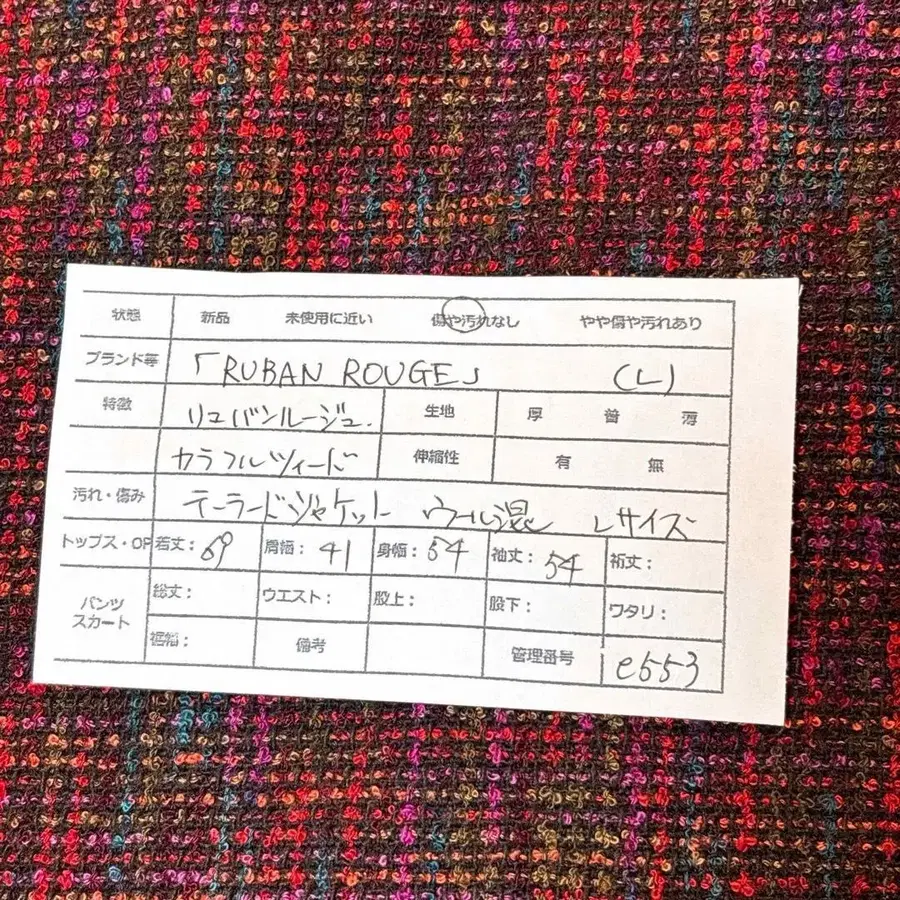 状態 新品 未使用に近い 傷や汚れなし やや傷や汚れあり
ブランド等 「RUBAN ROUGE」 (L)
特徴 リュバンルージュ. 生地 厚 普 薄
カラフルツィード 伸縮性 有 無
汚れ・傷み テーラードジャケット ウール混 Lサイズ
トップス・OP 着丈: 69 肩幅: 41 身幅: 54 袖丈: 54 裄丈:
パンツ スカート 総丈: ウエスト: 股上: 股下: ワタリ:
裾幅: 備考 管理番号 e553